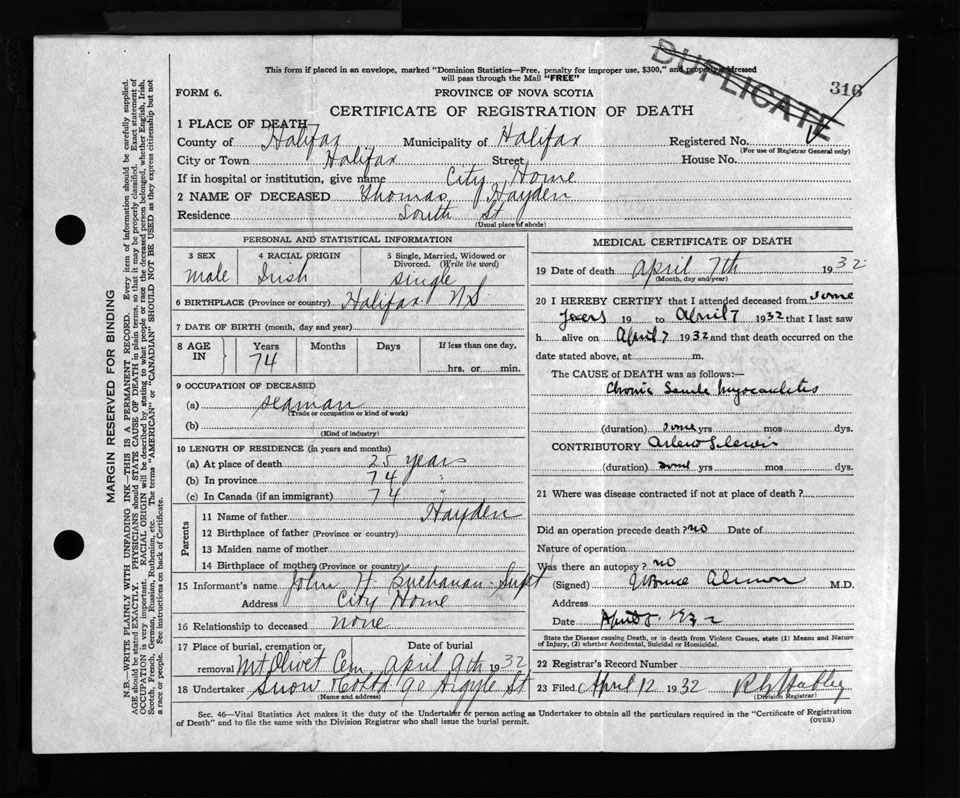 This form if placed in an envelope, marked "Dominion Statistics—Free, penalty for improper use, $300," and properly addressed
will pass through the Mail "FREE"
DUPLICATE
316
FORM 6.
PROVINCE OF NOVA SCOTIA
CERTIFICATE OF REGISTRATION OF DEATH
1 PLACE OF DEATH
County of Halifax Municipality of Halifax Registered No.
(For use of Registrar General only)
City or Town Halifax Street House No.
If in hospital or institution, give name City Home
2 NAME OF DECEASED Thomas Hayden
Residence South St
(Usual place of abode)
PERSONAL AND STATISTICAL INFORMATION
3 SEX 4 RACIAL ORIGIN 5 Single, Married, Widowed or
Divorced. (Write the word)
male Irish single
6 BIRTHPLACE (Province or country) Halifax NS
7 DATE OF BIRTH (month, day and year)
8 AGE IN Years Months Days If less than one day,
74 hrs. or min.
9 OCCUPATION OF DECEASED
(a) seaman
(Trade or occupation or kind of work)
(b)
(Kind of industry)
10 LENGTH OF RESIDENCE (in years and months)
(a) At place of death 25 years
(b) In province 74 "
(c) In Canada (if an immigrant) 74 "
Parents
11 Name of father Hayden
12 Birthplace of father (Province or country)
13 Maiden name of mother
14 Birthplace of mother (Province or country)
15 Informant's name John H Buchanan Supt
Address City Home
16 Relationship to deceased none
17 Place of burial, cremation or Date of burial
removal Mt Olivet Cem April 9th 1932
18 Undertaker Snow & Co Ltd 90 Argyle St
(Name and address)
MEDICAL CERTIFICATE OF DEATH
19 Date of death April 7th 1932
(Month, day and year)
20 I HEREBY CERTIFY that I attended deceased from some
years 19 to April 7 1932 that I last saw
h alive on April 7 1932 and that death occurred on the
date stated above, at m.
The CAUSE of DEATH was as follows:—
Chronic Senile Myocarditis
(duration) some yrs mos dys.
CONTRIBUTORY Arterio Sclerosis
(duration) some yrs mos dys.
21 Where was disease contracted if not at place of death?
Did an operation precede death? no Date of
Nature of operation
Was there an autopsy? no
(Signed) Bruce Almon M.D.
Address
Date April 8 1932
State the Disease causing Death, or in death from Violent Causes, state (1) Means and Nature
of Injury, (2) whether Accidental, Suicidal or Homicidal.
22 Registrar's Record Number
23 Filed April 12 1932
(Division Registrar)
Sec. 46—Vital Statistics Act makes it the duty of the Undertaker or person acting as Undertaker to obtain all the particulars required in the "Certificate of Registration
of Death" and to file the same with the Division Registrar who shall issue the burial permit. (OVER)
MARGIN RESERVED FOR BINDING
N.B.—WRITE PLAINLY WITH UNFADING INK—THIS IS A PERMANENT RECORD. Every item of information should be carefully supplied.
AGE should be stated EXACTLY. PHYSICIANS should STATE CAUSE OF DEATH in plain terms, so that it may be properly classified. Exact statement of
OCCUPATION is very important. RACIAL ORIGIN will be described by stating to what people or race the deceased person belonged, whether English, Irish,
Scotch, French, German, Russian, Ruthenian, etc. The terms "AMERICAN" or "CANADIAN" SHOULD NOT BE USED as they express citizenship but not
a race or people. See instructions on back of Certificate.